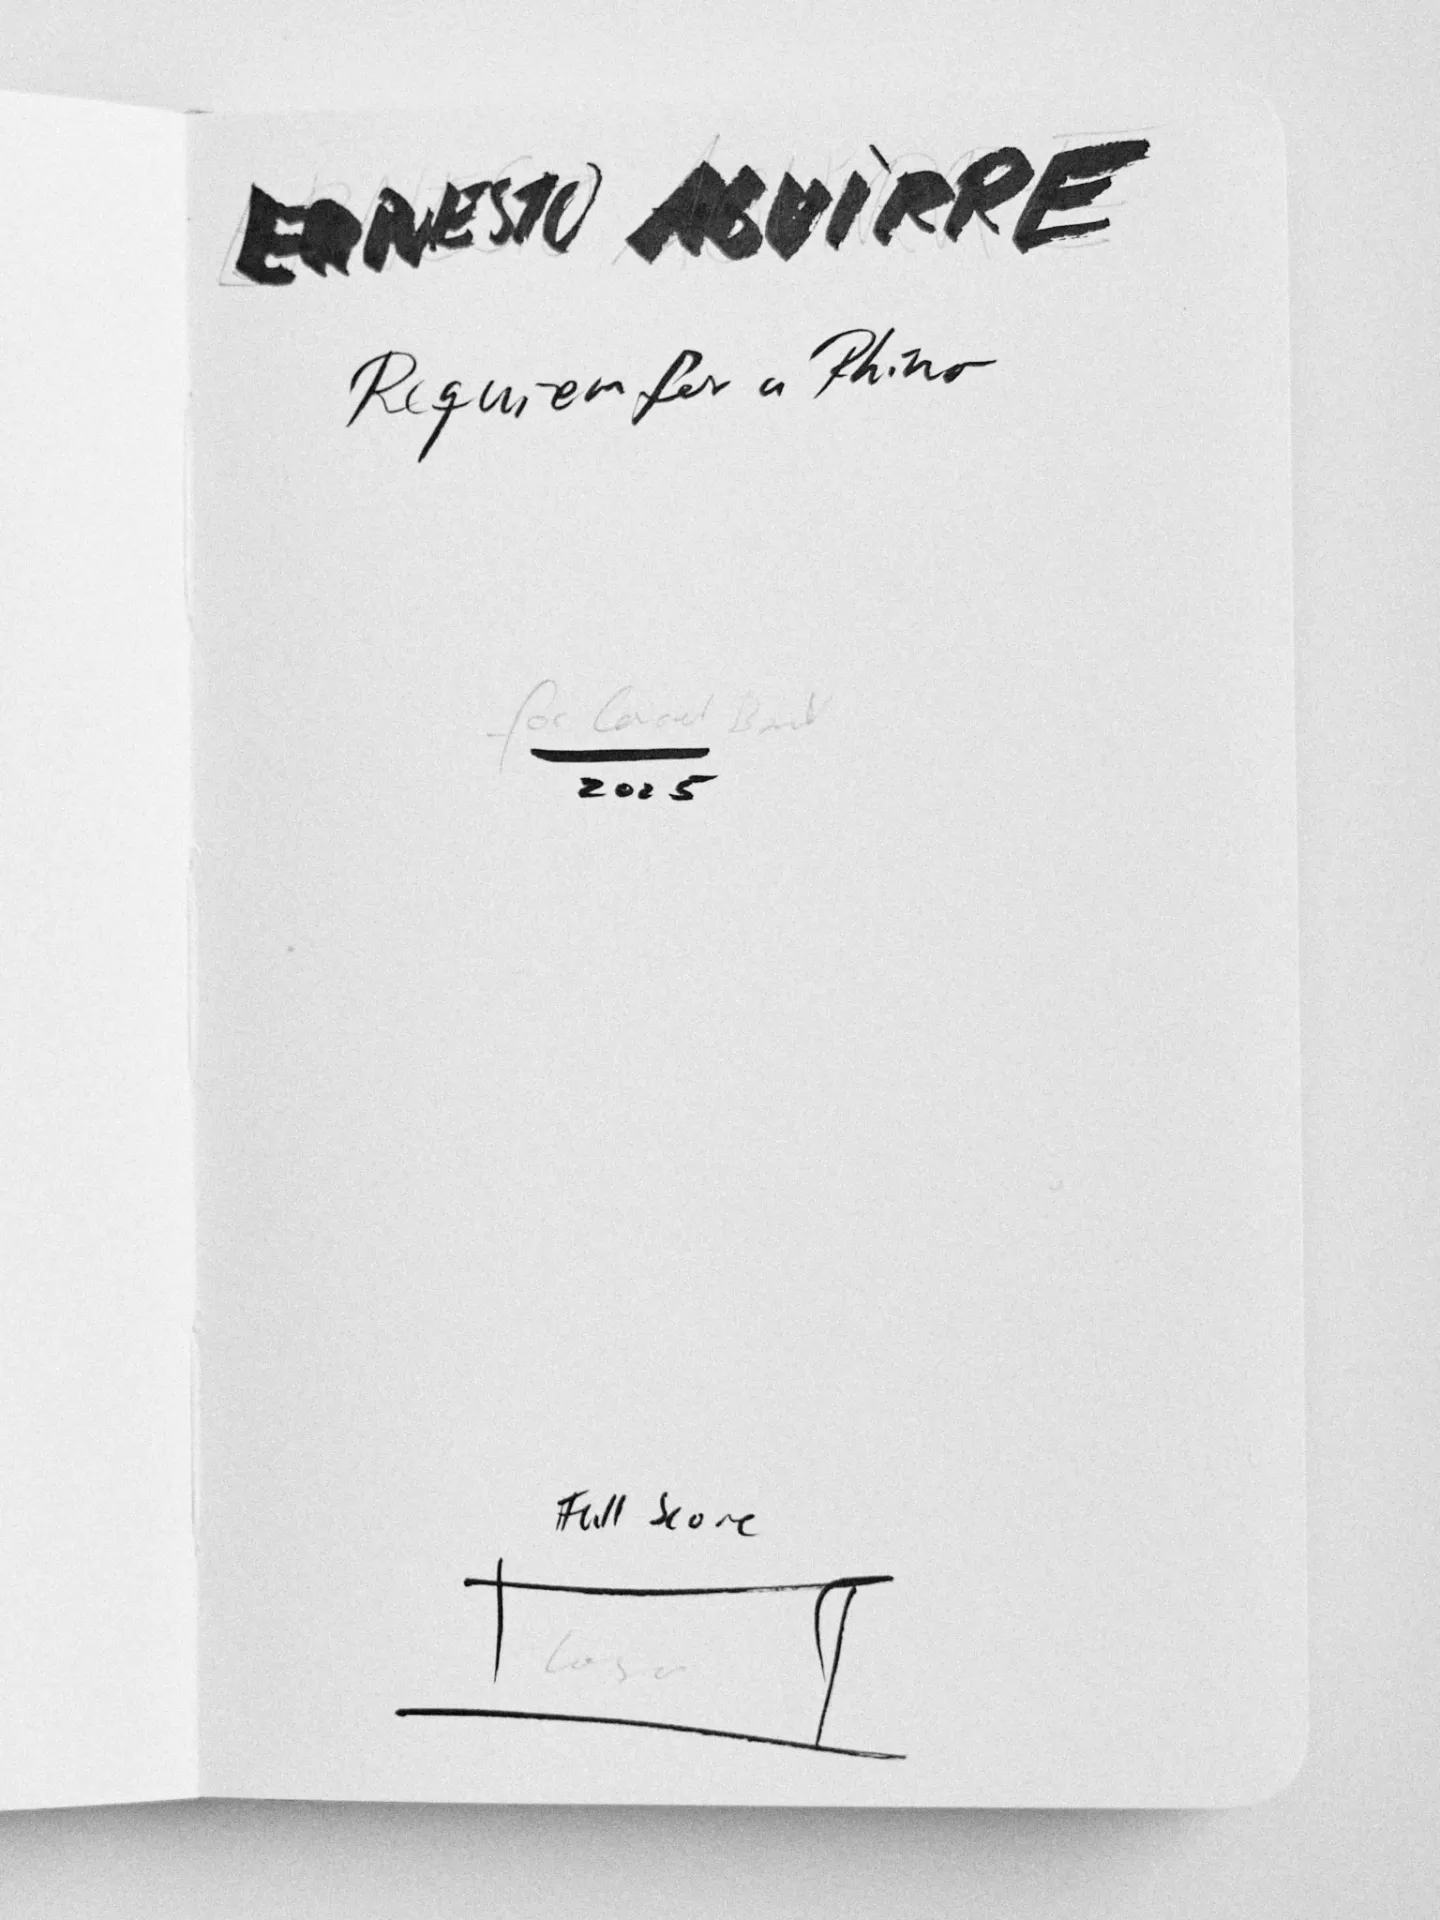 ERNESTO AGUÌRRE
Requiem for a Rhino
for Concert Band
2025
Full Score
Logo